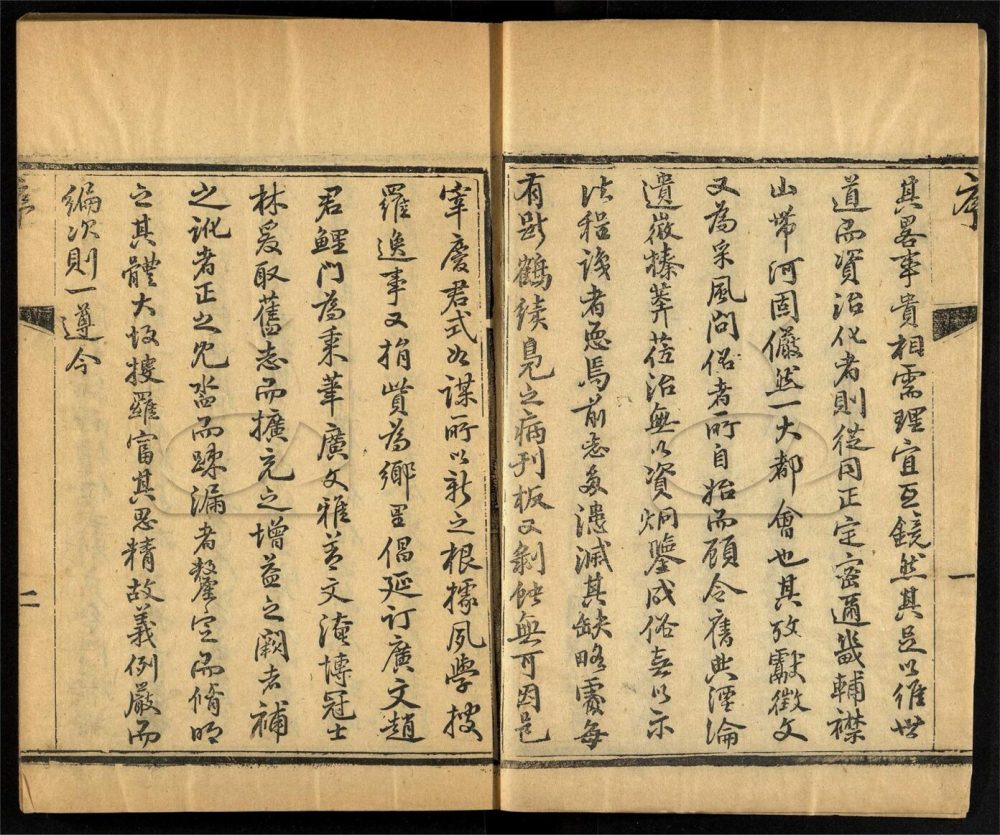 序
其畧事貴相需理宜互鏡然其足以維世
道而資治化者則從同正定密邇畿輔襟
山帶河固儼然一大都會也其攷獻徵文
又為采風問俗者所自始而顧令舊典湮淪
遺徵榛莽莅治無以資炯鑒成俗無以示
法程識者恧焉前志多漶滅其缺略處每
有斷鶴續鳧之病刊板又剝蝕無可因邑
一
宰慶君式如謀所以新之根據夙學搜
羅逸事又捐貲為鄉里倡延訂廣文趙
君鯉門為秉筆廣文雅善文淹博冠士
林爰取舊志而擴充之增益之闕者補
之訛者正之冗沓而踈漏者釐定而脩明
之其體大故搜羅富其思精故義例嚴而
編次則一遵今
二